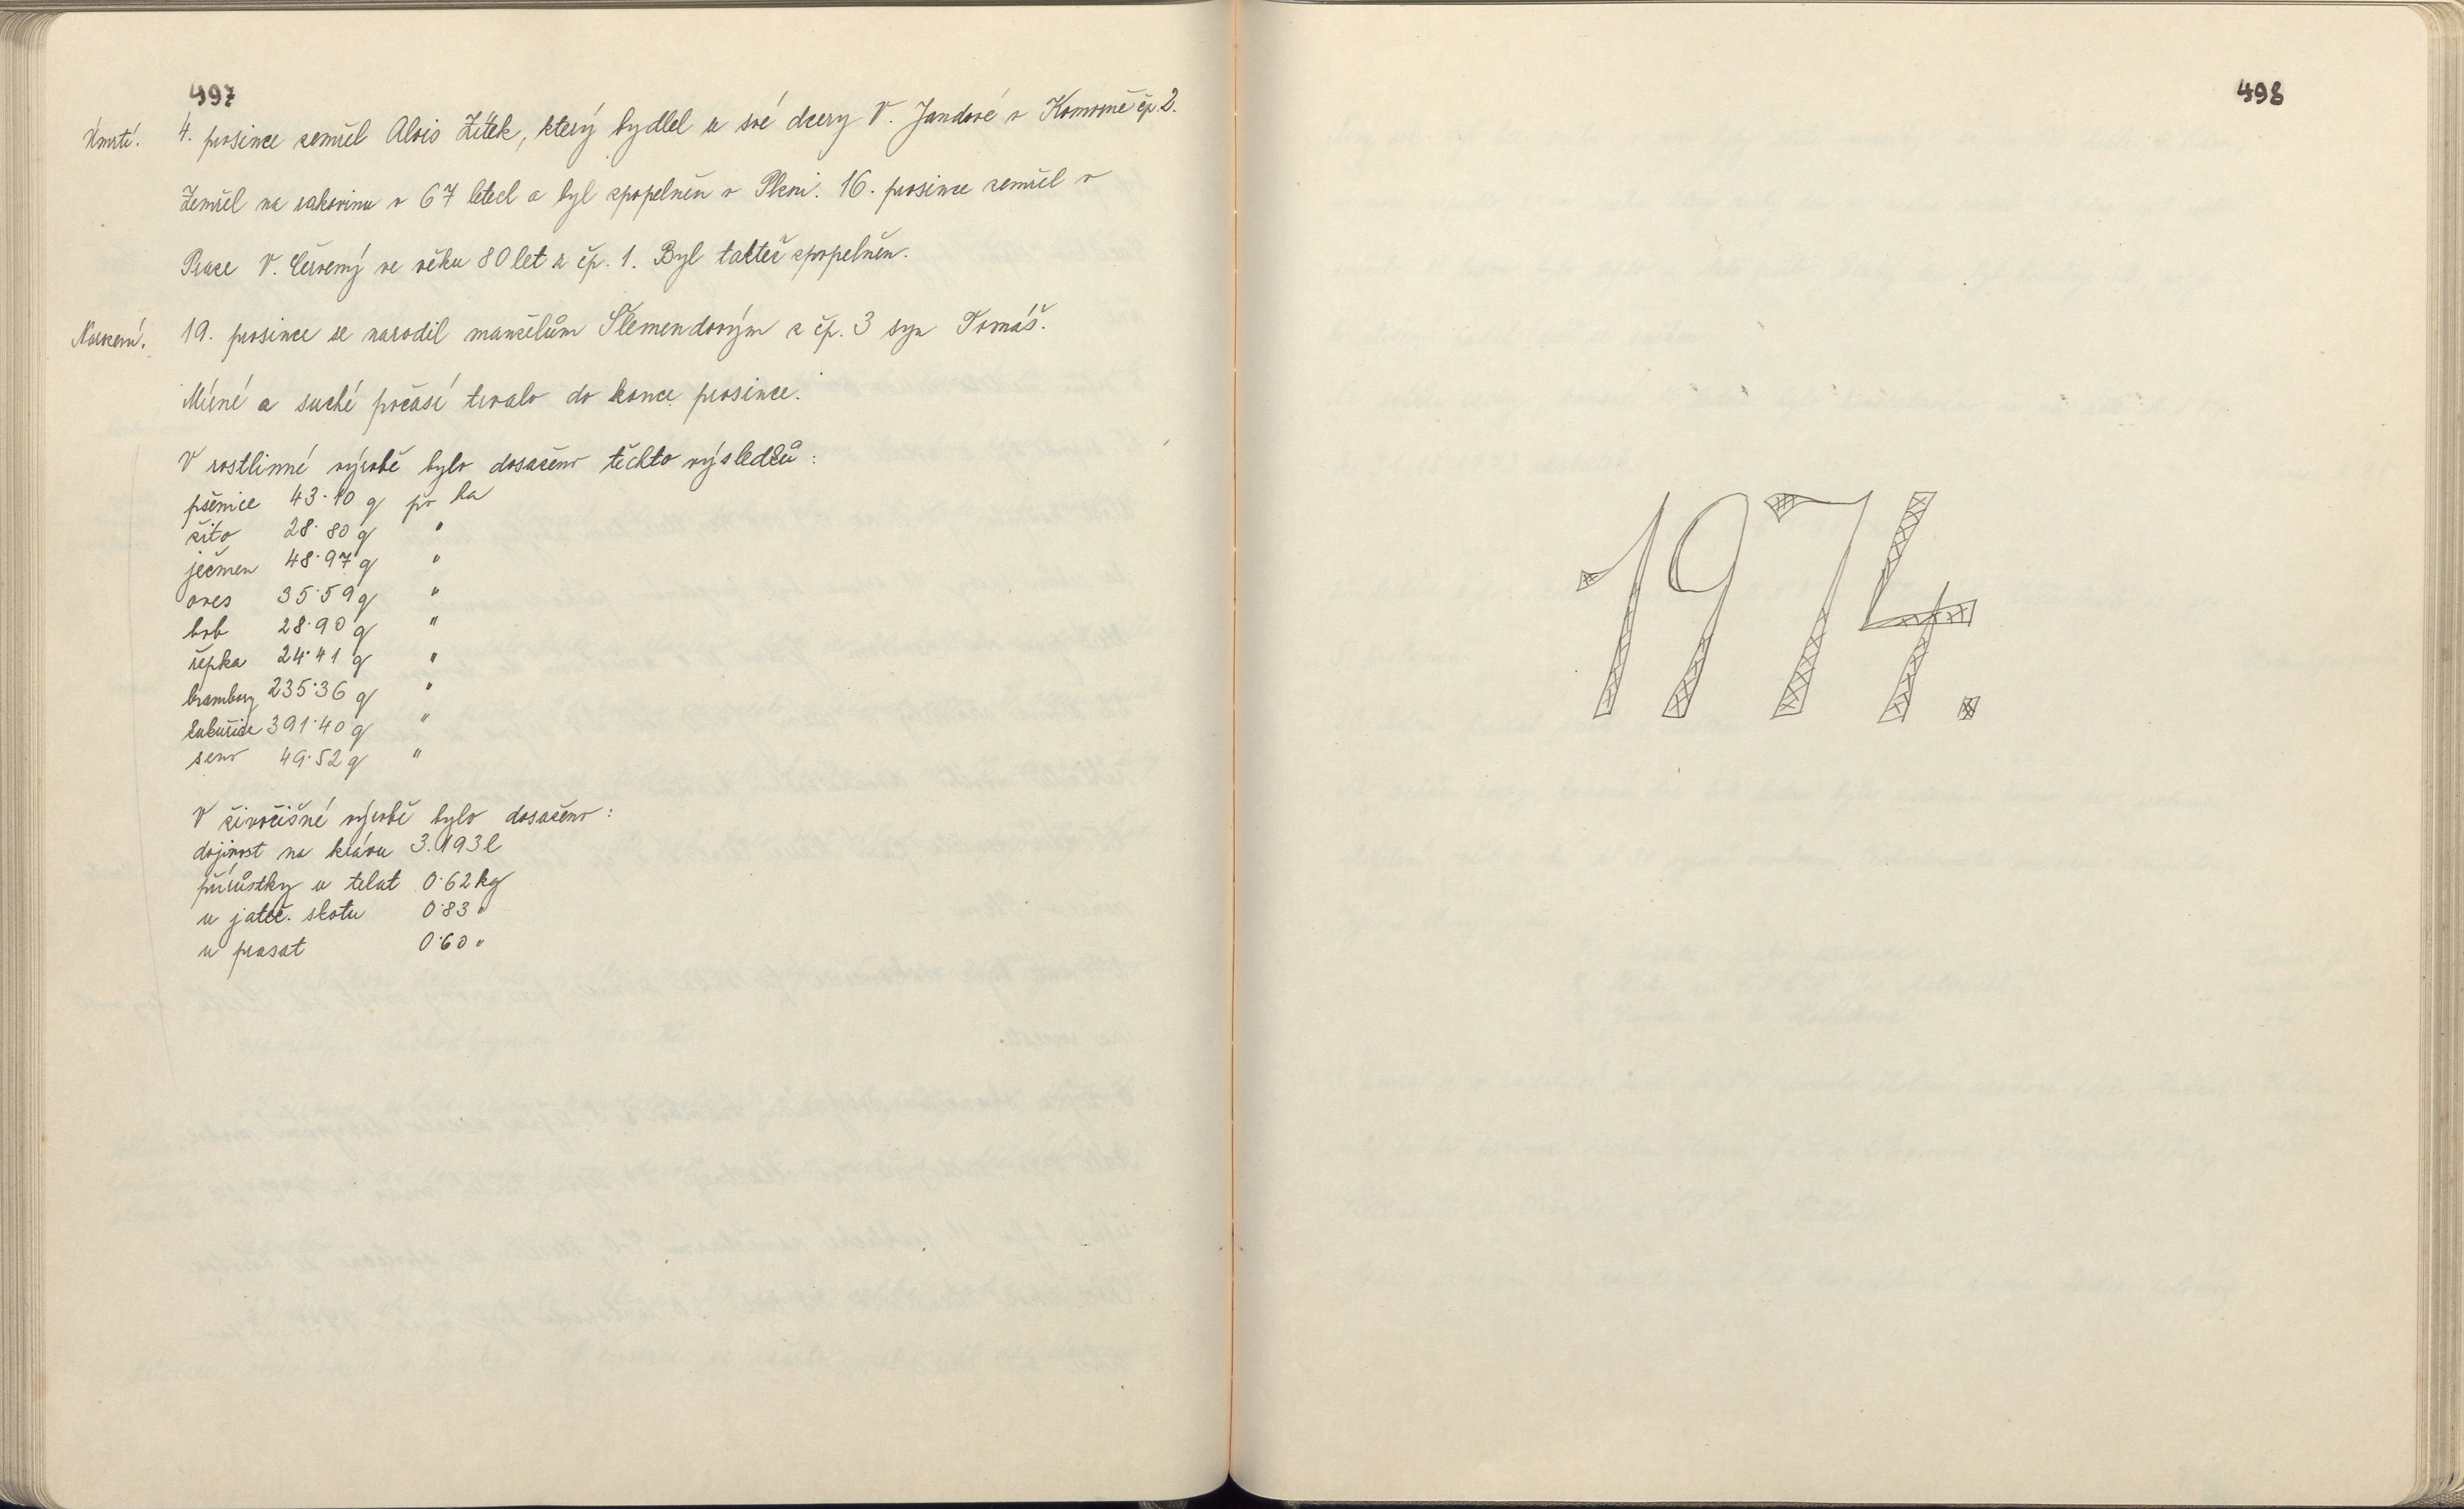 497
Úmrtí. 4. prosince zemřel Alois Žitek, který bydlel u své dcery V. Jandové v Komorně čp. 2.
Zemřel na rakovinu v 67 letech a byl zpopelněn v Plzni. 16. prosince zemřel v
Praze V. Červený ve věku 80 let z čp. 1. Byl taktéž zpopelněn.
Narození. 19. prosince se narodil manželům Šlemendovým z čp. 3 syn Tomáš.
Mírné a suché počasí trvalo do konce prosince.
V rostlinné výrobě bylo dosaženo těchto výsledků:
pšenice 43·10 q po ha
žito 28·80 q "
ječmen 48·97 q "
oves 35·59 q "
bob 28·90 q "
řepka 24·41 q "
brambory 235·36 q "
kukuřice 391·40 q "
seno 49·52 q "
V živočišné výrobě bylo dosaženo:
dojivost na krávu 3.193 l
přírůstky u telat 0·62 kg
u jateč. skotu 0·83 "
u prasat 0·60 "
498
1974.